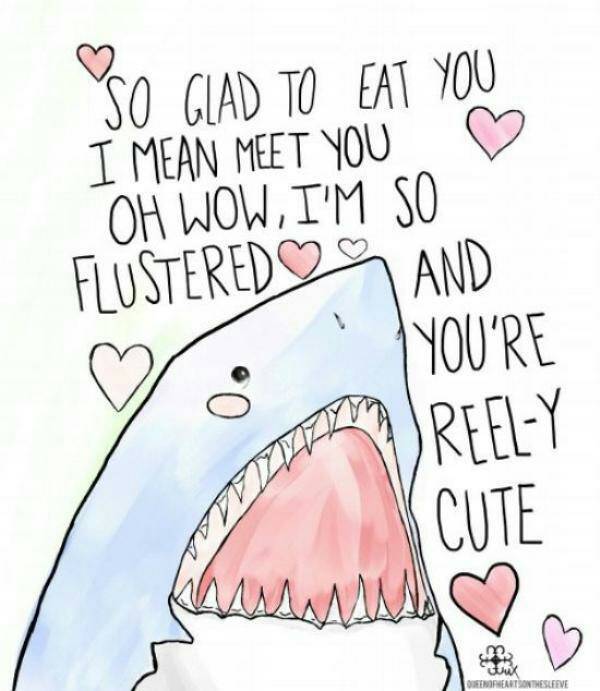 SO GLAD TO EAT YOU
I MEAN MEET YOU
OH WOW, I'M SO
FLUSTERED
AND
YOU'RE
REEL-Y
CUTE
QUEENOFHEARTSONTHESLEEVE